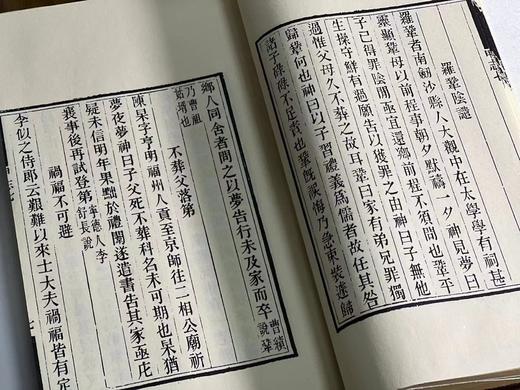 羅鞏陰譴
羅鞏者南劔沙縣人大觀中在太學學有祠甚
靈顯鞏每以前程事朝夕默禱一夕神見夢曰
子已得罪陰間亟宜還鄉前程不須問也鞏平
生操守鮮有過願告以獲罪之由神曰子無他
過惟父母久不葬之故耳鞏曰家有弟兄罪獨
歸鞏何也神曰以子習禮義爲儒者故任其咎
諸子碌碌不足責也鞏旣悞悔乃急束裝遽歸
鄉人同舍者問之以夢告行未及家而卒曹績說鞏
乃曹祖姑壻也
不葬父落第
陳杲字亨明福州人貢至京師往二相公廟祈
夢夜夢神曰子父死不葬科名未可期也杲猶
疑未信明年果黜於禮闈遂遣書告其家亟庀
喪事後再試登第寧德人李舒長說
禍福不可避
李似之侍郎云艱難以來士大夫禍福皆有定